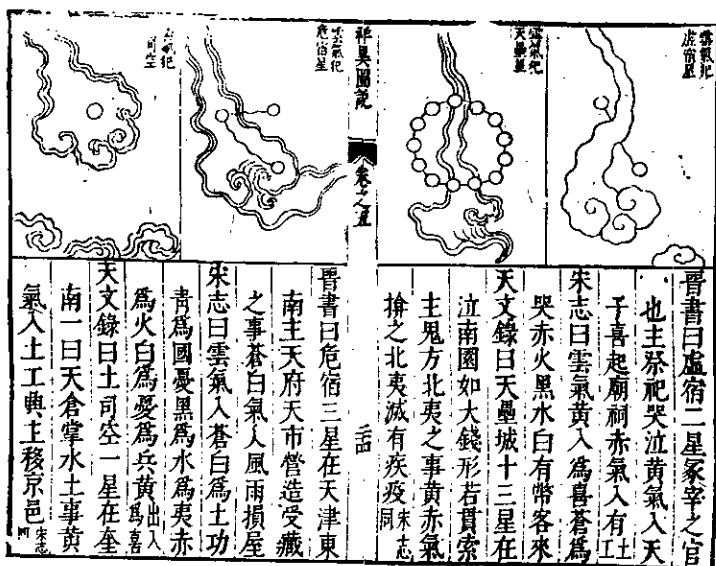 雲氣犯
虛宿星
雲氣犯
天壘星
祥異圖說
卷之五
雲氣犯
危宿星
雲氣犯
晉書曰虛宿二星冢宰之官
也主祭祀哭泣黃氣入天
子喜起廟祠赤氣入有土工
宋志曰雲氣黃入為喜蒼為
哭赤火黑水白有幣客來
天文錄曰天壘城十三星在
泣南圜如大錢形若貫索
主鬼方北夷之事黃赤氣
揜之北夷滅有疾疫宋志同
二十四
晉書曰危宿三星在天津東
南主天府天市營造受藏
之事蒼白氣入風雨損屋
宋志曰雲氣入蒼白為土功
青為國憂黑為水為夷赤
為火白為憂為兵黃出入為喜
天文錄曰土司空一星在奎
南一曰天倉掌水土事黃
氣入土工興主移京邑宋志同